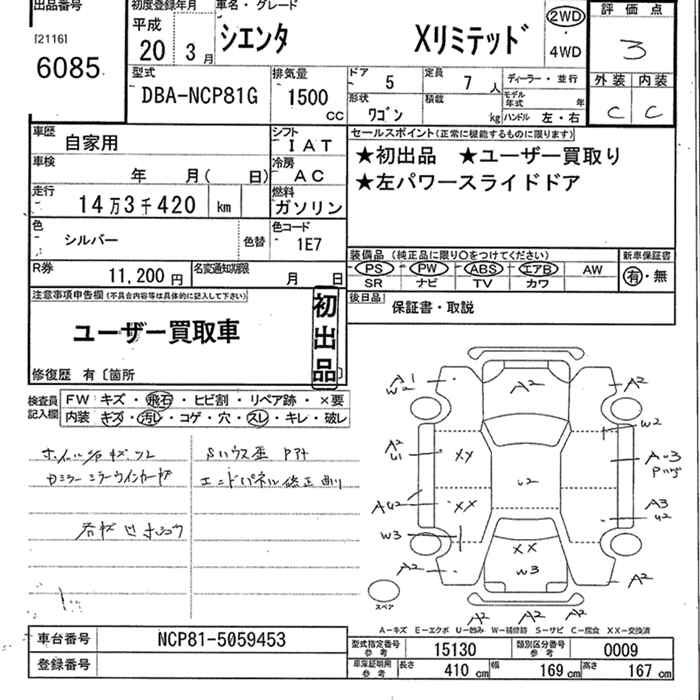 出品番号 初度登録年月 車名・グレード 評価点
[2116] 平成
6085 20 3月 シエンタ Xリミテッド 2WD・4WD 3
型式 排気量 ドア 5 定員 7人 ディーラー・並行 外装 内装
DBA-NCP81G 1500cc 形状 ワゴン 積載 kg モデル年式 年 ハンドル 左・右 C C
車歴 自家用 シフト IAT セールスポイント(正常に機能するものに限ります)
車検 年 月( 日) 冷房 AC ★初出品 ★ユーザー買取り
走行 14万3千420 km 燃料 ガソリン ★左パワースライドドア
色 シルバー 色替 色コード 1E7
R券 11,200円 名変通知期限 月 日
装備品(純正品に限り○をつけてください) 新車保証書
PS PW ABS エアB AW 有・無
SR ナビ TV カワ
注意事項申告欄(不具合内容等は具体的に記入して下さい) 初出品 後日品 保証書・取説
ユーザー買取車
修復歴 有〔箇所 〕
検査員記入欄 FW キズ・飛石・ヒビ割・リペア跡・×要
内装 キズ・汚レ・コゲ・穴・スレ・キレ・破レ
A1 W2 A2 A2
A2 U1 XX W2
U2 A-3
AU2 XX A3 U2
W3 XX
A2 W3 A2
スペア
A2 A2 A2
A-キズ E-エクボ U-凹み W-補修跡 S-サビ C-腐食 XX-交換済
車台番号 NCP81-5059453
登録番号
型式指定番号 参考 15130 類別区分番号 参考 0009
車庫証明用 参考 長さ 410cm 幅 169cm 高さ 167cm